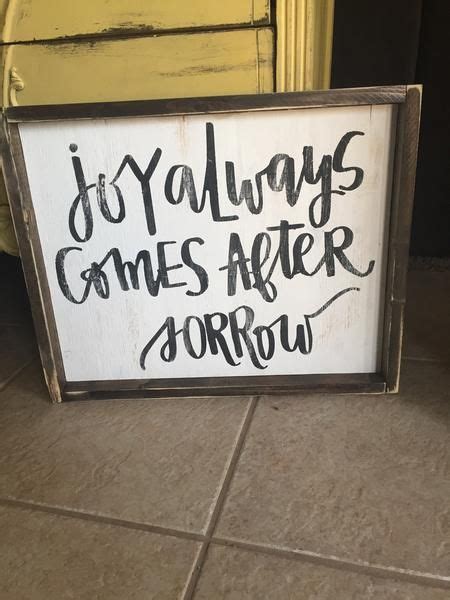 joy always
comes after
sorrow